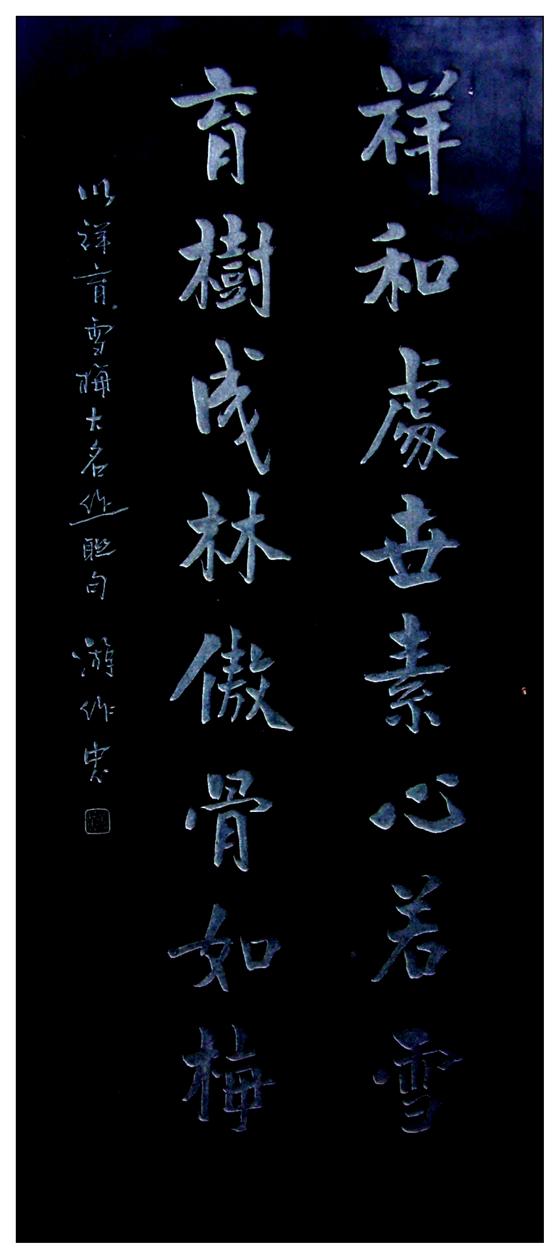 祥和處世素心若雪
育樹成林傲骨如梅
以祥育雪梅大名作聯句 游作忠